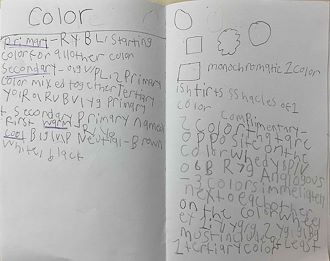 Color
Primary - RYB L1 starting
color for all other color
Secondary - OGVP L2 Primary
color mixed together Tertiary
YO RO RV BV YG Primary
+ Secondary Primary names
first warm
cool BGVP Neutral - Brown
white black
monochromatic 1 color
ish tints shades of 1
color
Complimentary -
2 color that are
opposite on the
color wheel
OB RG Analogous
- 3 colors
next to each other
on the color wheel
must include at least
1 tertiary color